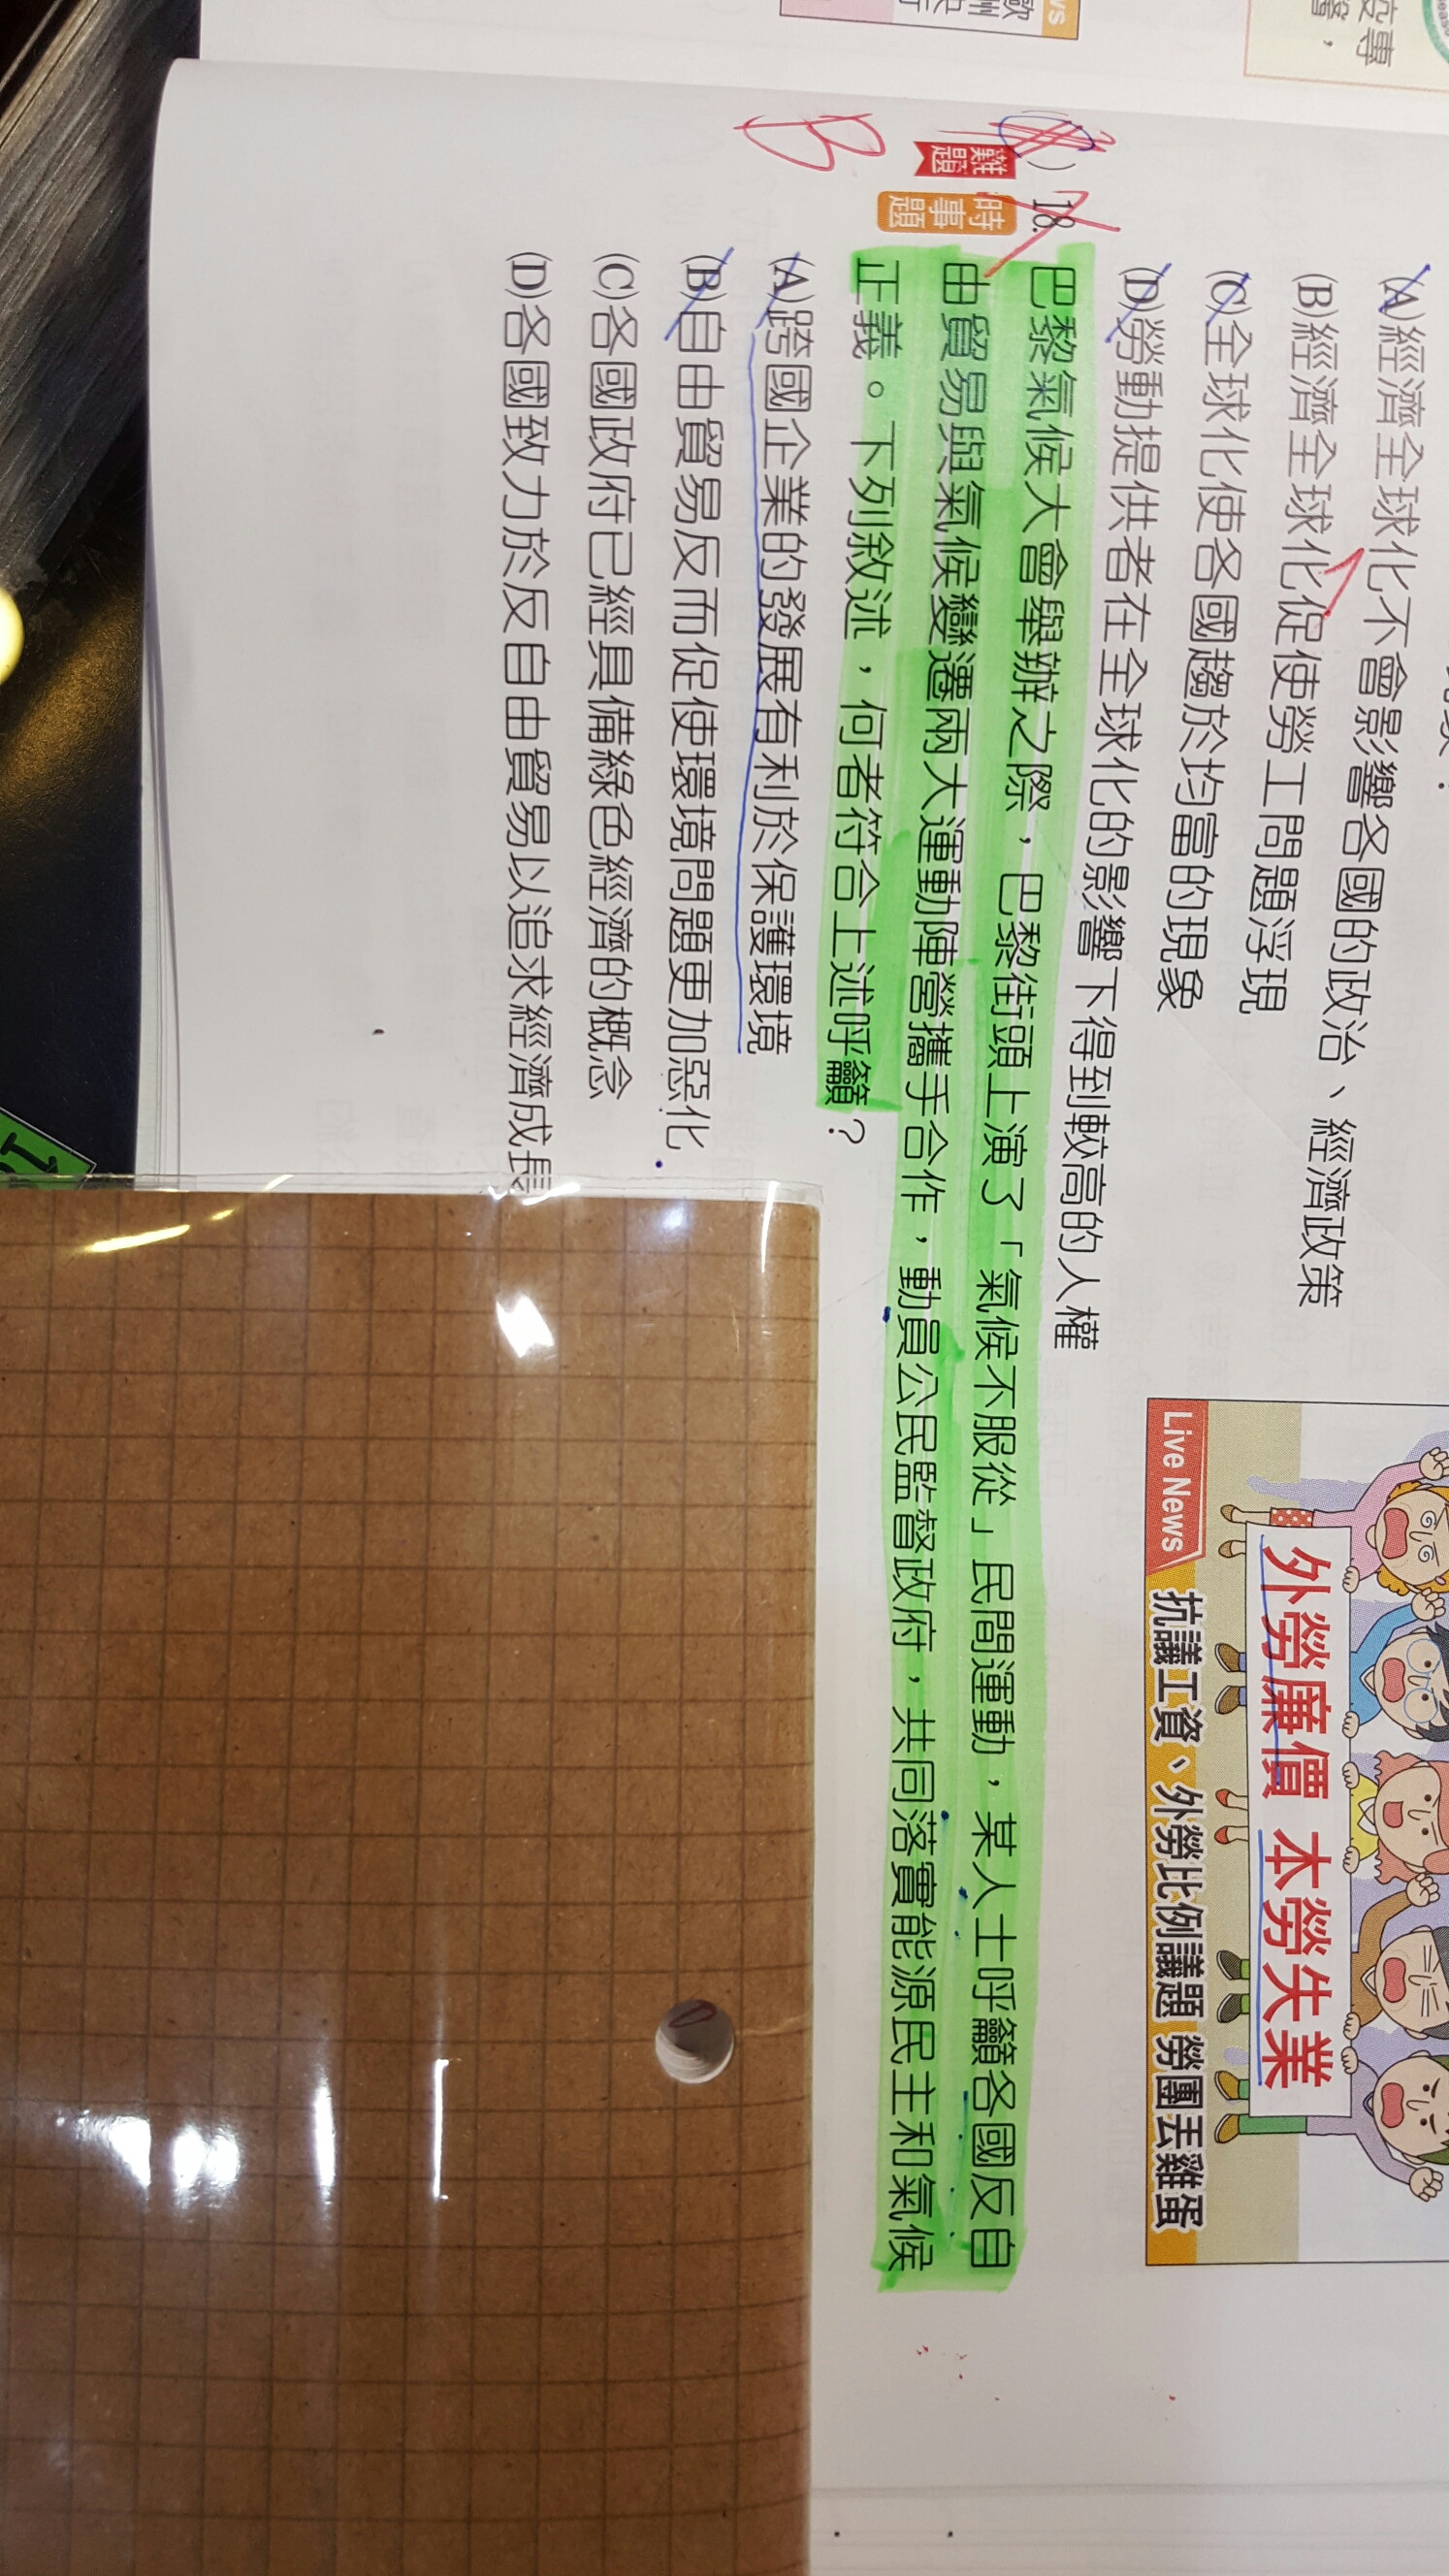 (A)經濟全球化不會影響各國的政治、經濟政策
(B)經濟全球化促使勞工問題浮現
(C)全球化使各國趨於均富的現象
(D)勞動提供者在全球化的影響下得到較高的人權
外勞廉價 本勞失業
Live News
抗議工資、外勞比例議題 勞團丟雞蛋
) 18. 巴黎氣候大會舉辦之際，巴黎街頭上演了「氣候不服從」民間運動，某人士呼籲各國反自
難題
時事題
由貿易與氣候變遷兩大運動陣營攜手合作，動員公民監督政府，共同落實能源民主和氣候
正義。下列敘述，何者符合上述呼籲？
B
(A)跨國企業的發展有利於保護環境
(B)自由貿易反而促使環境問題更加惡化
(C)各國政府已經具備綠色經濟的概念
(D)各國致力於反自由貿易以追求經濟成長